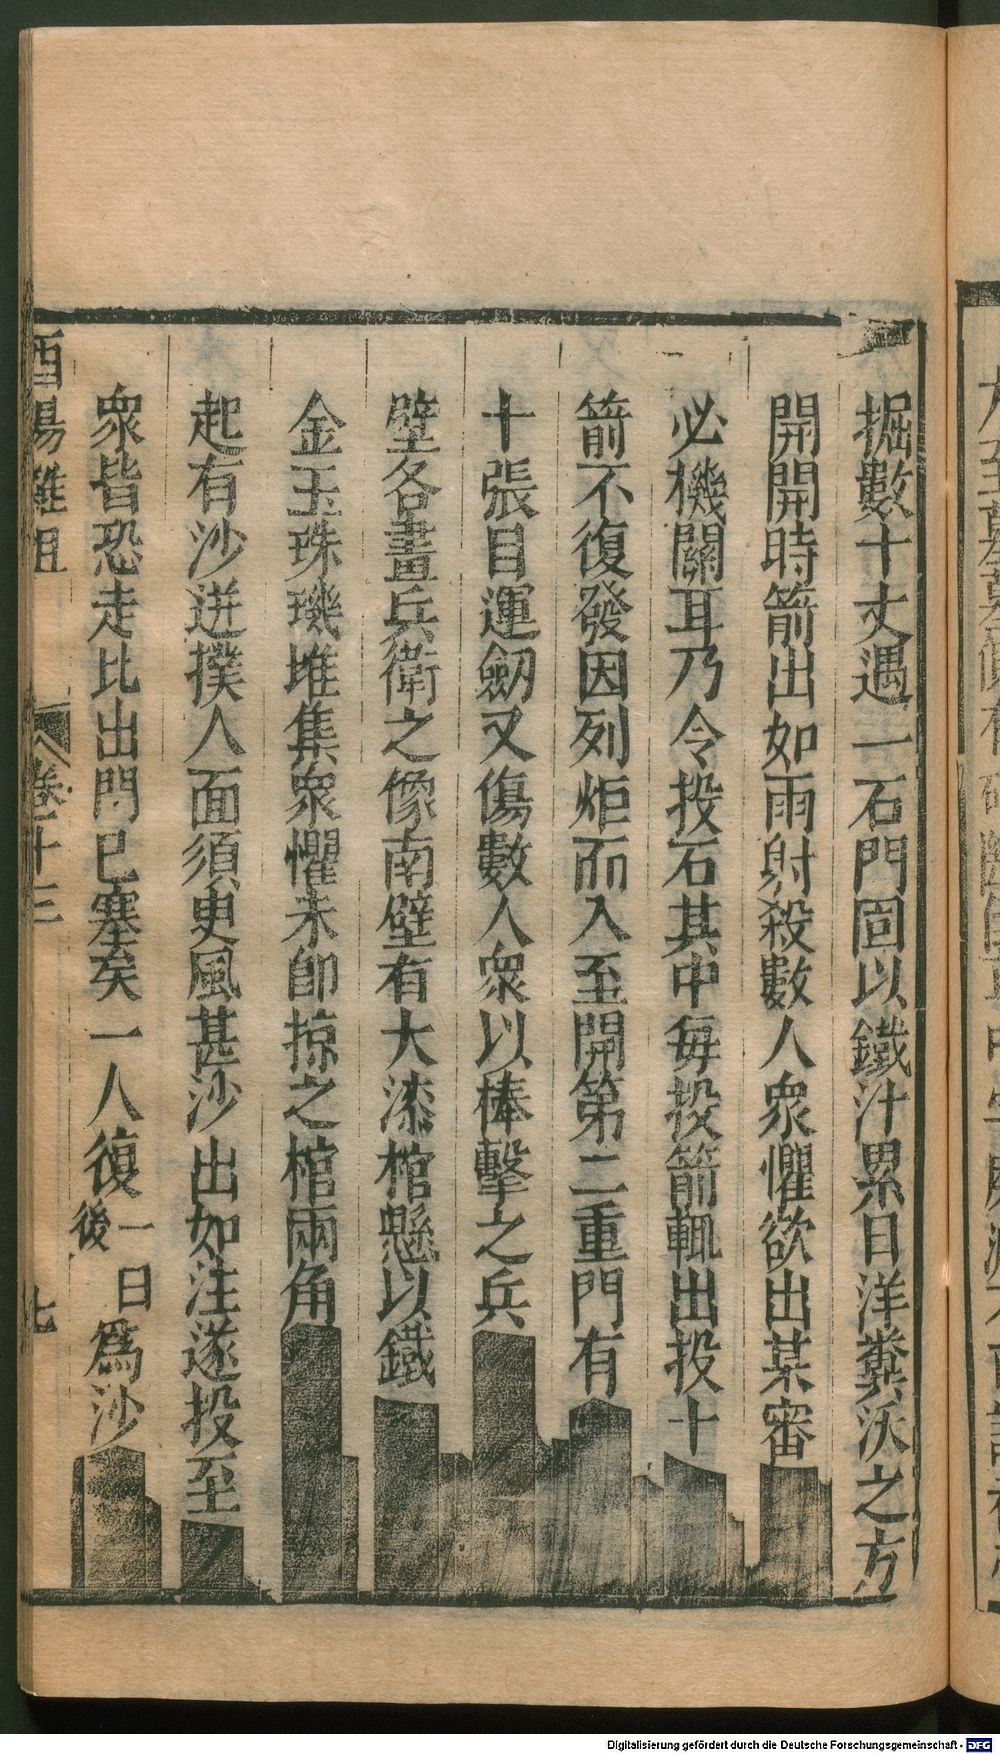 掘數十丈遇一石門固以鐵汁累日洋糞沃之方
開開時箭出如雨射殺數人衆懼欲出某審
必機關耳乃令投石其中每投箭輒出投十
箭不復發因列炬而入至開第二重門有
十張目運劒又傷數人衆以棒擊之兵
壁各畫兵衛之像南壁有大漆棺懸以鐵
金玉珠璣堆集衆懼未即掠之棺兩角
起有沙迸撲人面須臾風甚沙出如注遂投至
衆皆恐走比出門已塞矣一人復
一日
後
爲沙
酉陽雜俎
卷十三
七
Digitalisierung gefördert durch die Deutsche Forschungsgemeinschaft - DFG